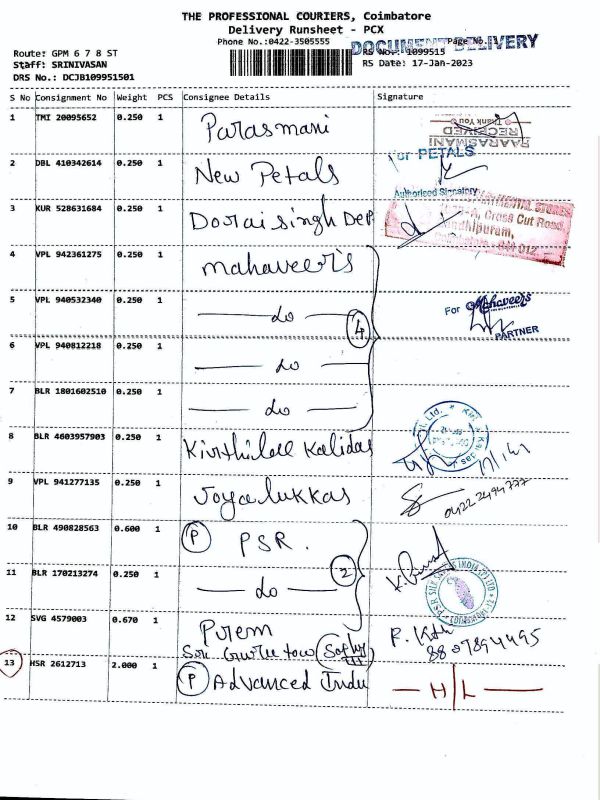 THE PROFESSIONAL COURIERS, Coimbatore
Delivery Runsheet - PCX
Phone No.:0422-3505555
DOCUMENT DELIVERY
Page No.:1
Route: GPM 6 7 8 ST
RS No.: 1099515
Staff: SRINIVASAN
RS Date: 17-Jan-2023
DRS No.: DCJB109951501
S No Consignment No Weight PCS Consignee Details Signature
1 TMI 20095652 0.250 1 Parasmani
Thank You
RECEIVED
PAARASMANI
2 DBL 410342614 0.250 1 New Petals
For PETALS
Authorised Signatory
3 KUR 528631684 0.250 1 Dorai singh Dep
Cross Cut Road,
Gandhipuram,
Coimbatore - 641 012
4 VPL 942361275 0.250 1 mahaveer's
5 VPL 940532340 0.250 1 do
4
For Mahaveer's
PARTNER
6 VPL 940812218 0.250 1 do
7 BLR 1801602510 0.250 1 do
8 BLR 4603957903 0.250 1 Kirthilal Kalidas
9 VPL 941277135 0.250 1 Joyalukkas
0422 2494777
10 BLR 490828563 0.600 1 P PSR.
11 BLR 170213274 0.250 1 do
2
PSR SILK INDIA (P) LTD
12 SVG 4579003 0.670 1 Prem
8807894495
13 HSR 2612713 2.000 1 P Advanced Indu
H/L